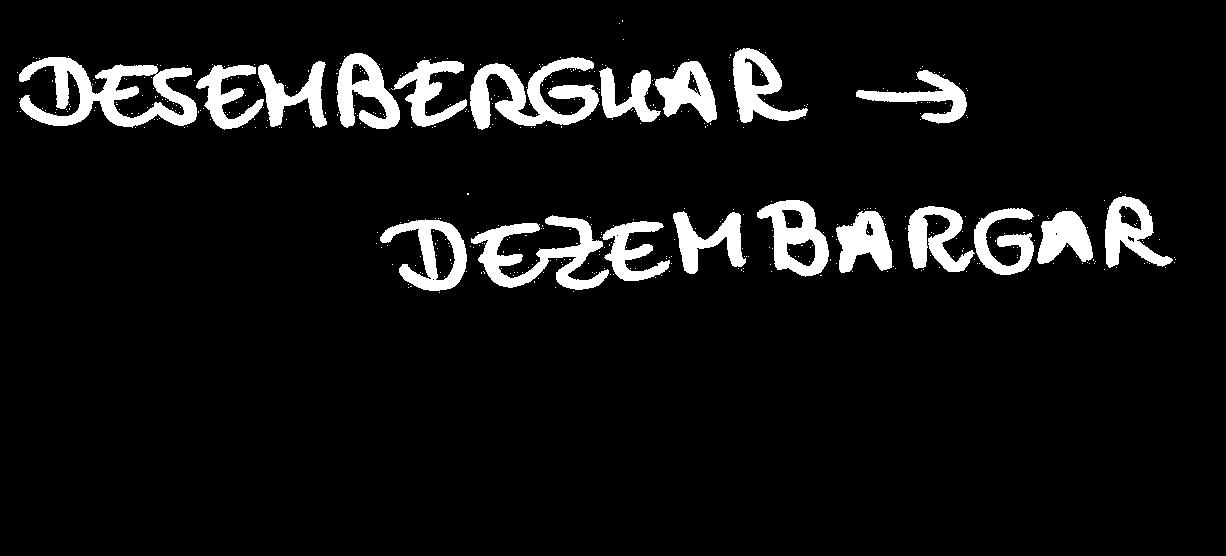 DESEMBERGUAR →
DEZEMBARGAR